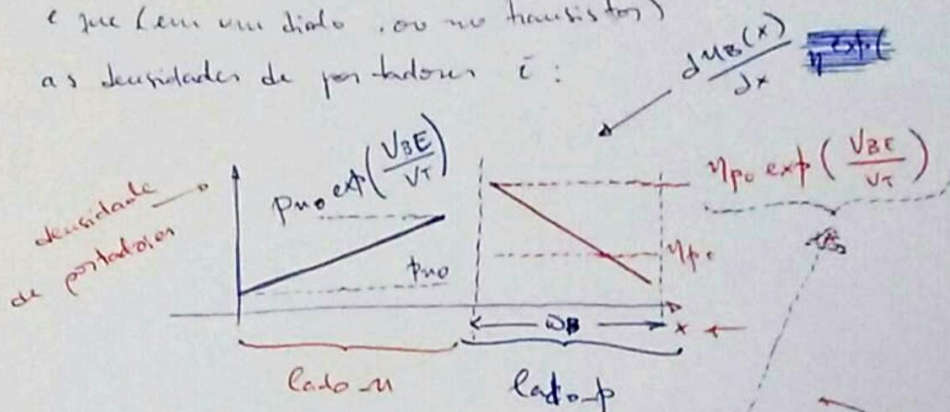 e que (em um díodo, ou no transistor)
as densidades de portadores é:
dnB(x)/dx
densidade de portadores
pno exp(VBE/VT)
npo exp(VBE/VT)
pno
npo
ωB
x
lado-n
lado-p